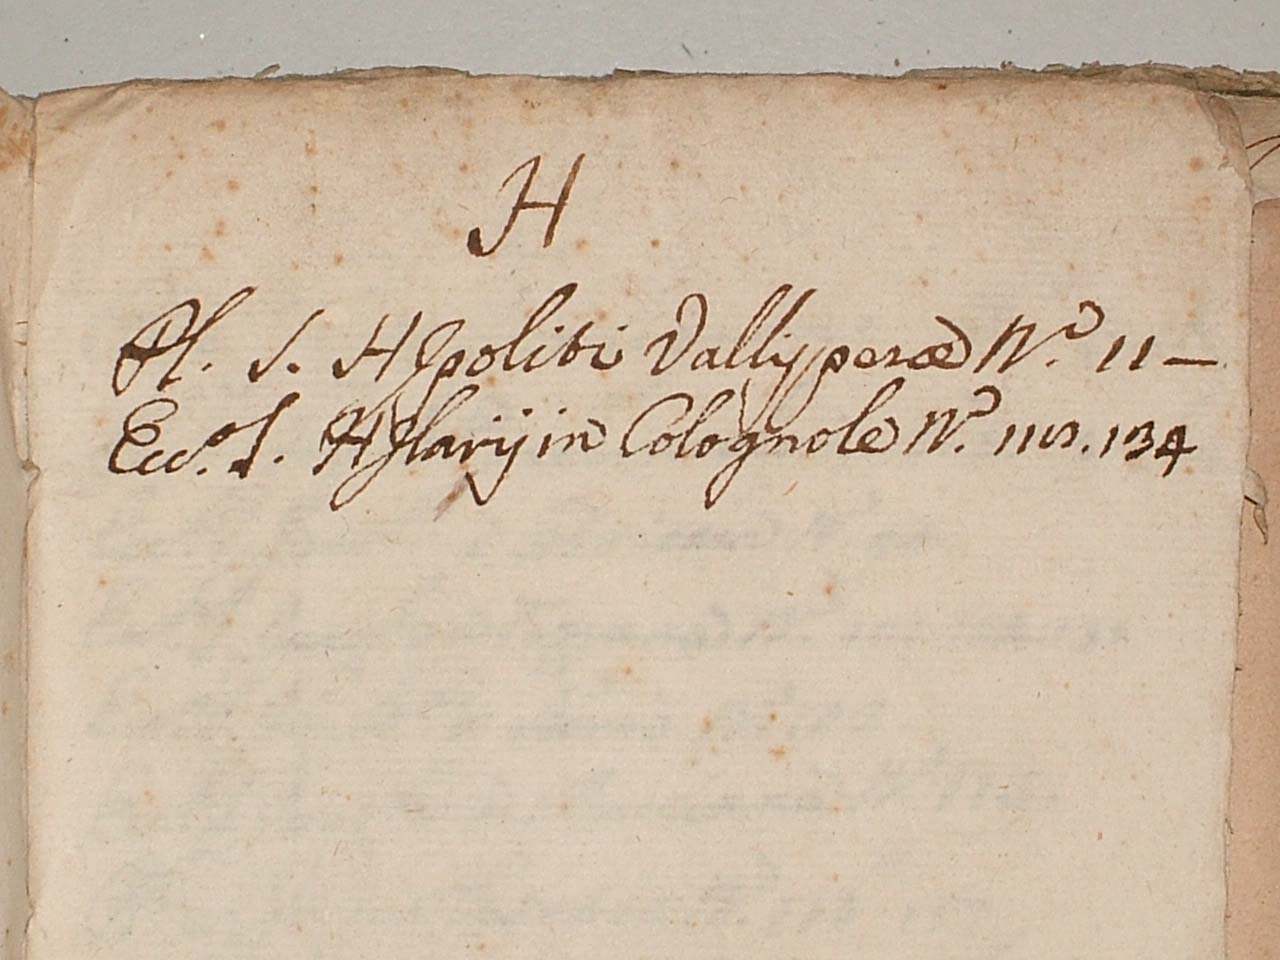 H
Pl. S. HIpoliti Vallisperæ N.º 11 —
Ecc.ª S. HIlarij in Colognole N.º 113. 134